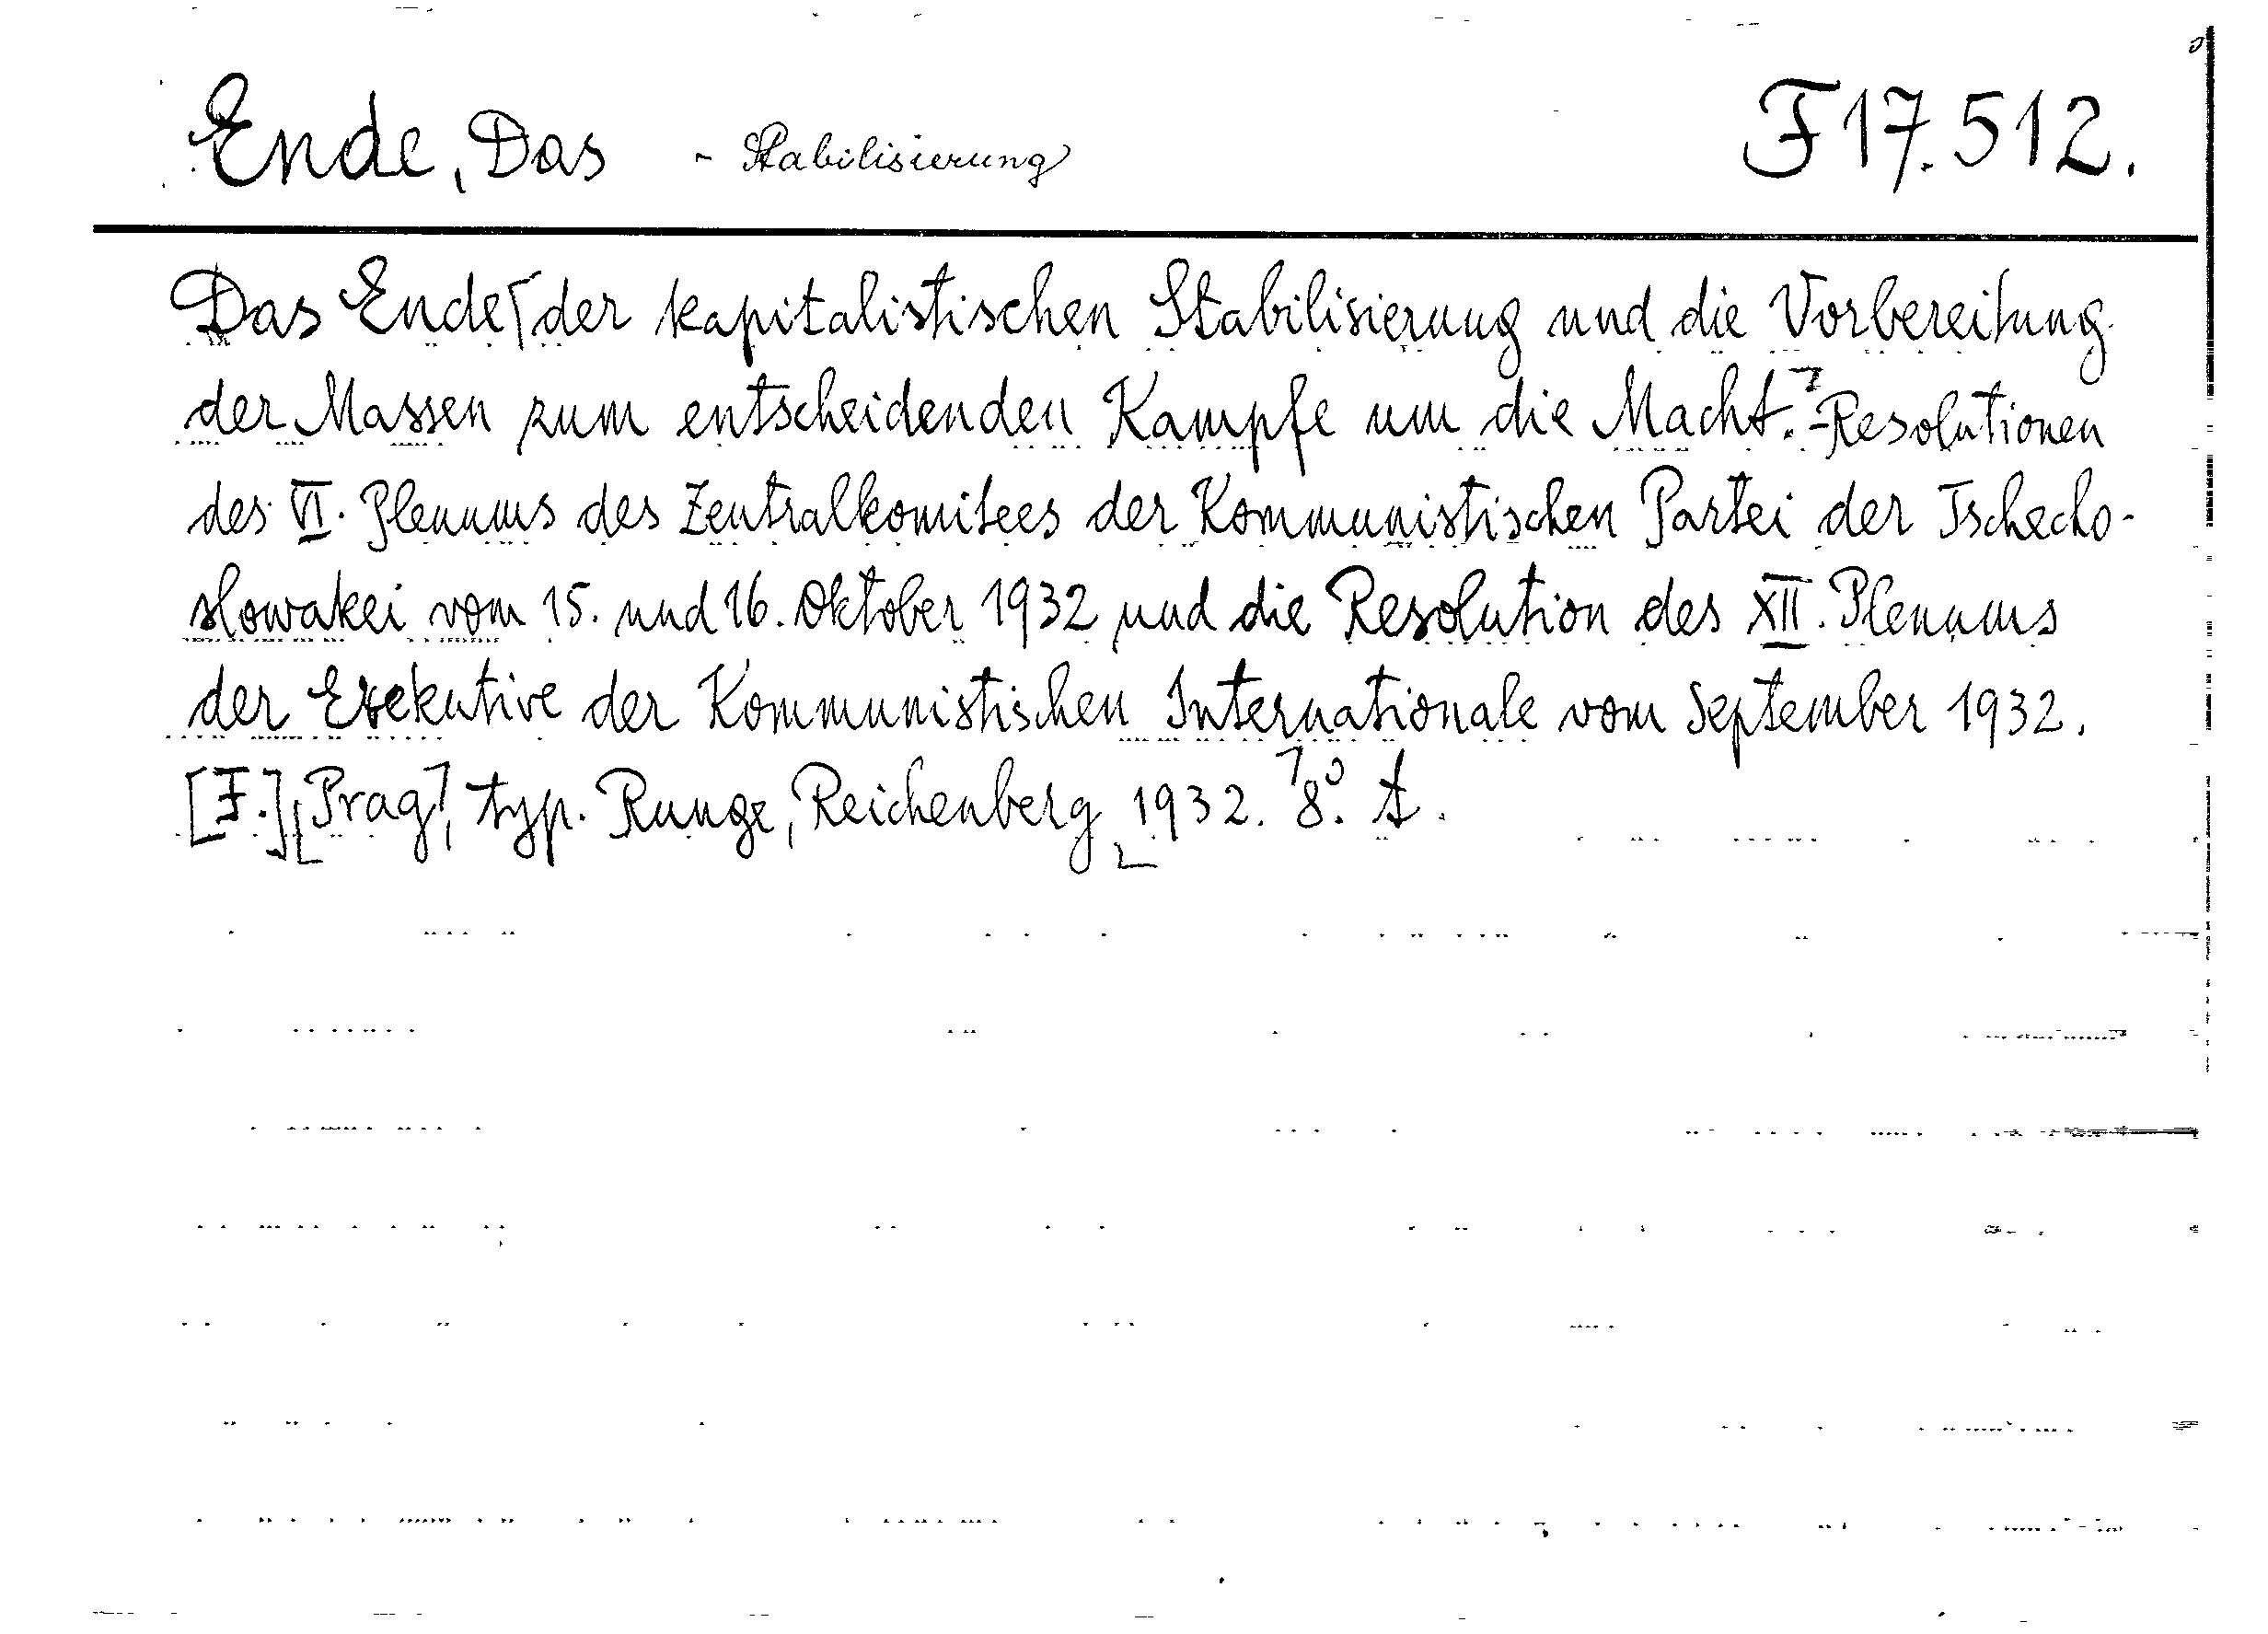 Ende, Das - Stabilisierung F 17.512.
Das Ende der kapitalistischen Stabilisierung und die Vorbereitung
der Massen zum entscheidenden Kampfe um die Macht. - Resolutionen
des VI. Plenums des Zentralkomitees der Kommunistischen Partei der Tschecho-
slowakei vom 15. und 16. Oktober 1932 und die Resolution des XII. Plenums
der Exekutive der Kommunistischen Internationale vom September 1932.
[F.] [Prag], typ. Runge, Reichenberg, 1932. 8°.